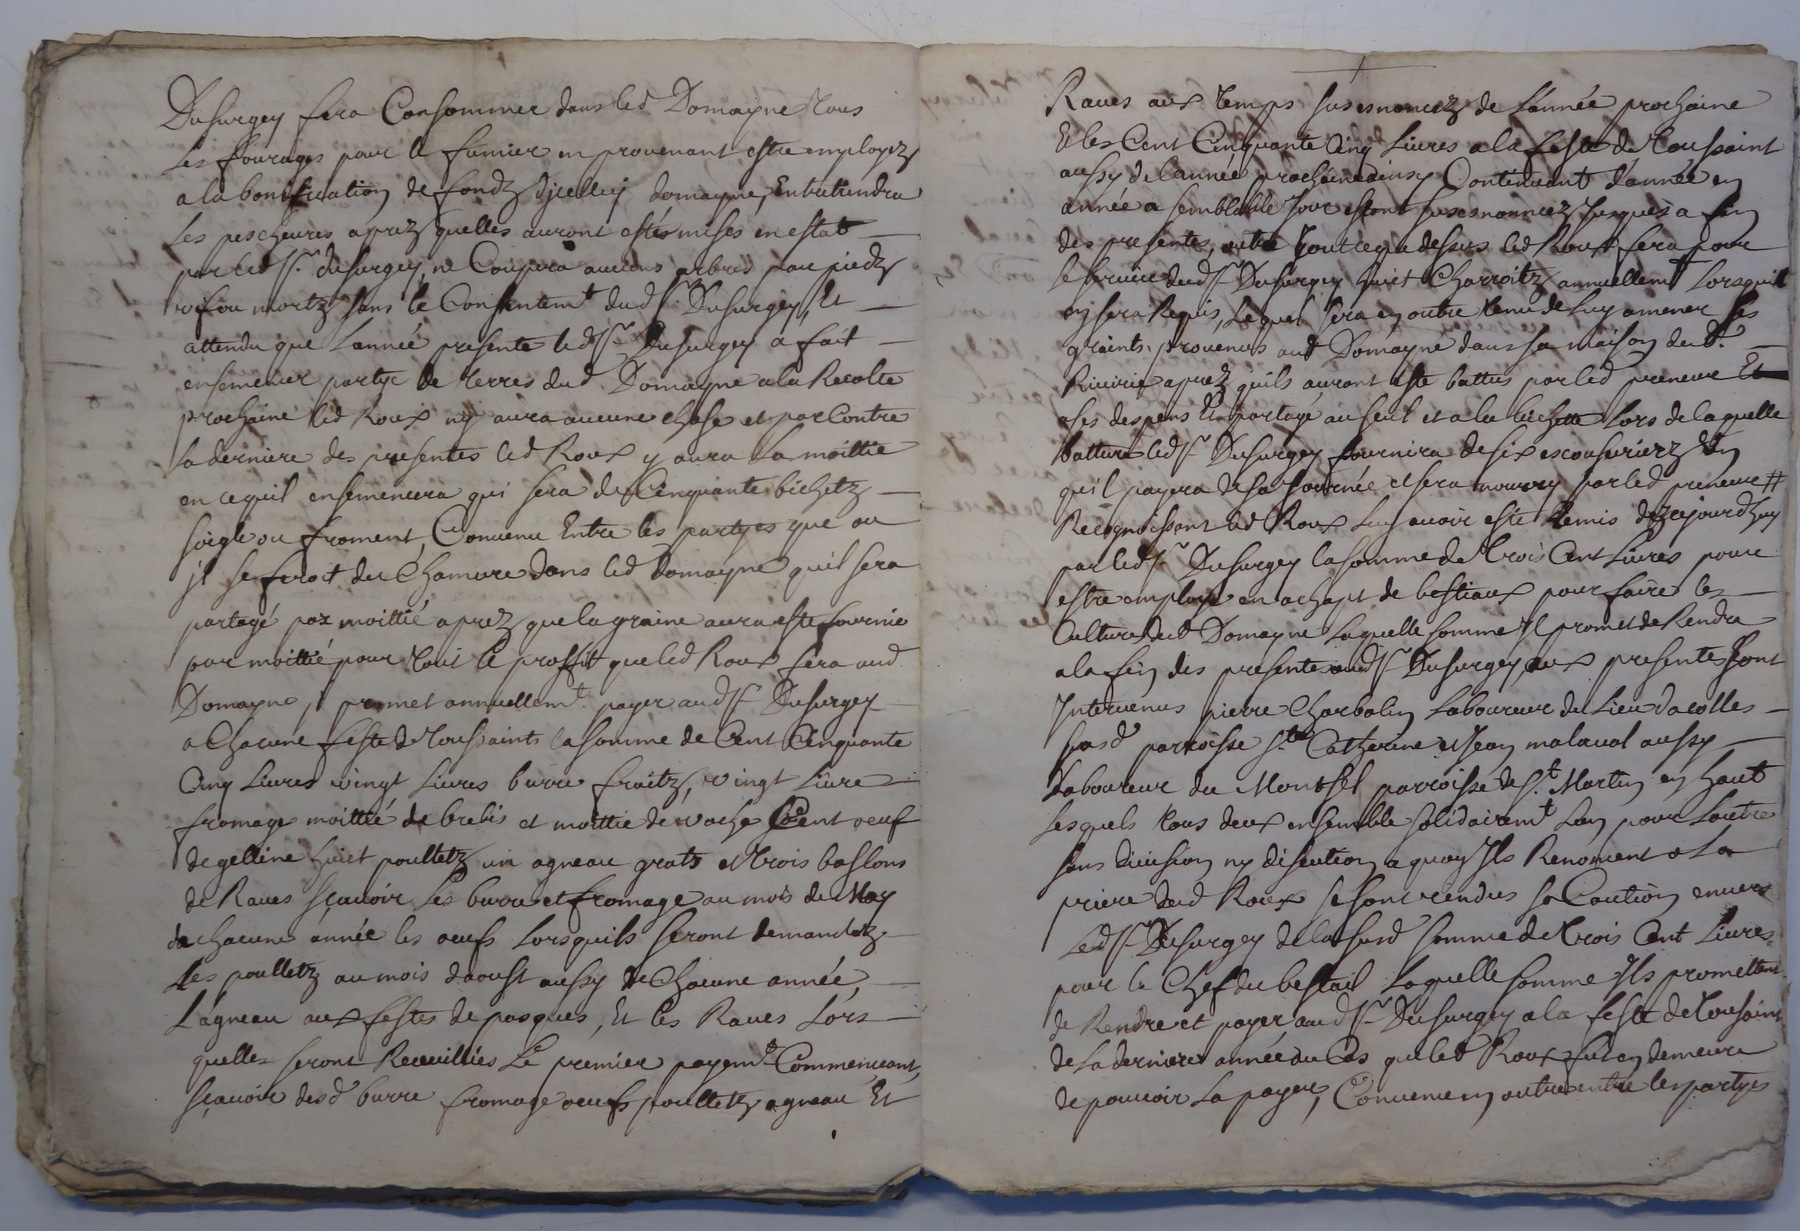 Dusurgey fera Consommer dans led Domayne Tous
Les fourages pour le fumier en provenant estre employez
a la bonification de fondz djcelluy domayne, Entretiendra
Les pescheures aprez quelles auront estés mises en estat
par led Sr. dusurgey, ne Coupera aucuns arbres par piedz
vif ou mortz sans le Consentemt dud Sr Dusurgey, Et
attendu que Lannée presente led Sr Dusurgey a fait
ensemencer partye de terres dud Domayne a la Recolte
prochaine led Roux ny aura aucune chose et par Contre
La derniere des presentes led Roux y aura La moittie
en cequil ensemencera qui sera de Cinquante bichetz
soigle ou froment, Convenu Entre les partyes que ou
jl se feroit du Chamure dans led Domayne quil sera
partagé par moittié aprez que la graine aura esté fournie
par moittié pour Tout le proffit que led Roux fera aud
Domayne, promet annuellemt payer aud Sr Dusurgey
a Chacune feste de Toussaints la somme de Cent Cinquante
Cinq Livres vingt Livres burre fraitz, vingt Livre
fromage moittié de brebis et moittie de vache Cent oeuf
de gelline huict poulletz un agneau grats et Trois baslons
de Raves sçavoir Les burre et fromage au mois de May
de chacune année les oeufs Lorsquils seront demandez
Les poulletz au mois daoust aussy de Chacune année,
L'agneau aux festes de pasques, Et les Raves Lors
quelles seront Recuillies Le premier payemt Commenceant,
sçavoir desd burre fromage oeufs poulletz agneau Et
Raves aux Temps susesnoncez de Lannée prochaine
Et les Cent Cinquante Cinq Livres a la feste de Toussaint
aussy de lannée prochaine ainsy Continuant d'année en
année a semblable Jour et susesnoncez Jusques a fin
des presentes, outre Tout ce que dessus led Roux fera pour
le service dud Sr Dusurgey huict Charroitz annuellemt Lorsquil
en sera Requis, Lequel sera en outre tenu de Luy amener ses
graints provenus aud Domayne dans sa maison de
Riuirie aprez quils auront esté battus par led preneur Et
a ses despens Et partagé au seul et a la bichette Lors de laquelle
batture led Sr Dusurgey fournira de six escousurierz Un
qu'il payera de sa Journée et sera nourry par led preneur #
Recognoissant led Roux Luy avoir esté Remis dezajourdhuy
par led Sr Dusurgey la somme de Trois Cent Livres pour
estre employé en achapt de bestiaux pour faire les
Cultures dud Domayne Laquelle somme Il promet de Rendre
a la fin des presentes aud Sr Dusurgey, aux presentes sont
Intervenus pierre Charbolin Laboureur du Lieu
susd parroisse Ste Catherine et Jean malaval aussy
Laboureur du Montsel parroisse de St. Martin en haut
Lesquels Tous deux ensemble solidairemt Lun pour Lautre
sans division ny discution a quoy Ils Renoncent a La
priere dud Roux se sont rendus sa Caution envers
Led Sr Dusurgey de la susd somme de Trois Cent Livres
pour le Chef du bestail Laquelle somme Ils promettent
de Rendre et payer aud Sr Dusurgey a la feste de Tousaint
de La derniere année au Cas que led Roux fut en demeure
de pouvoir La payer, Convenu en outre entre les partyes